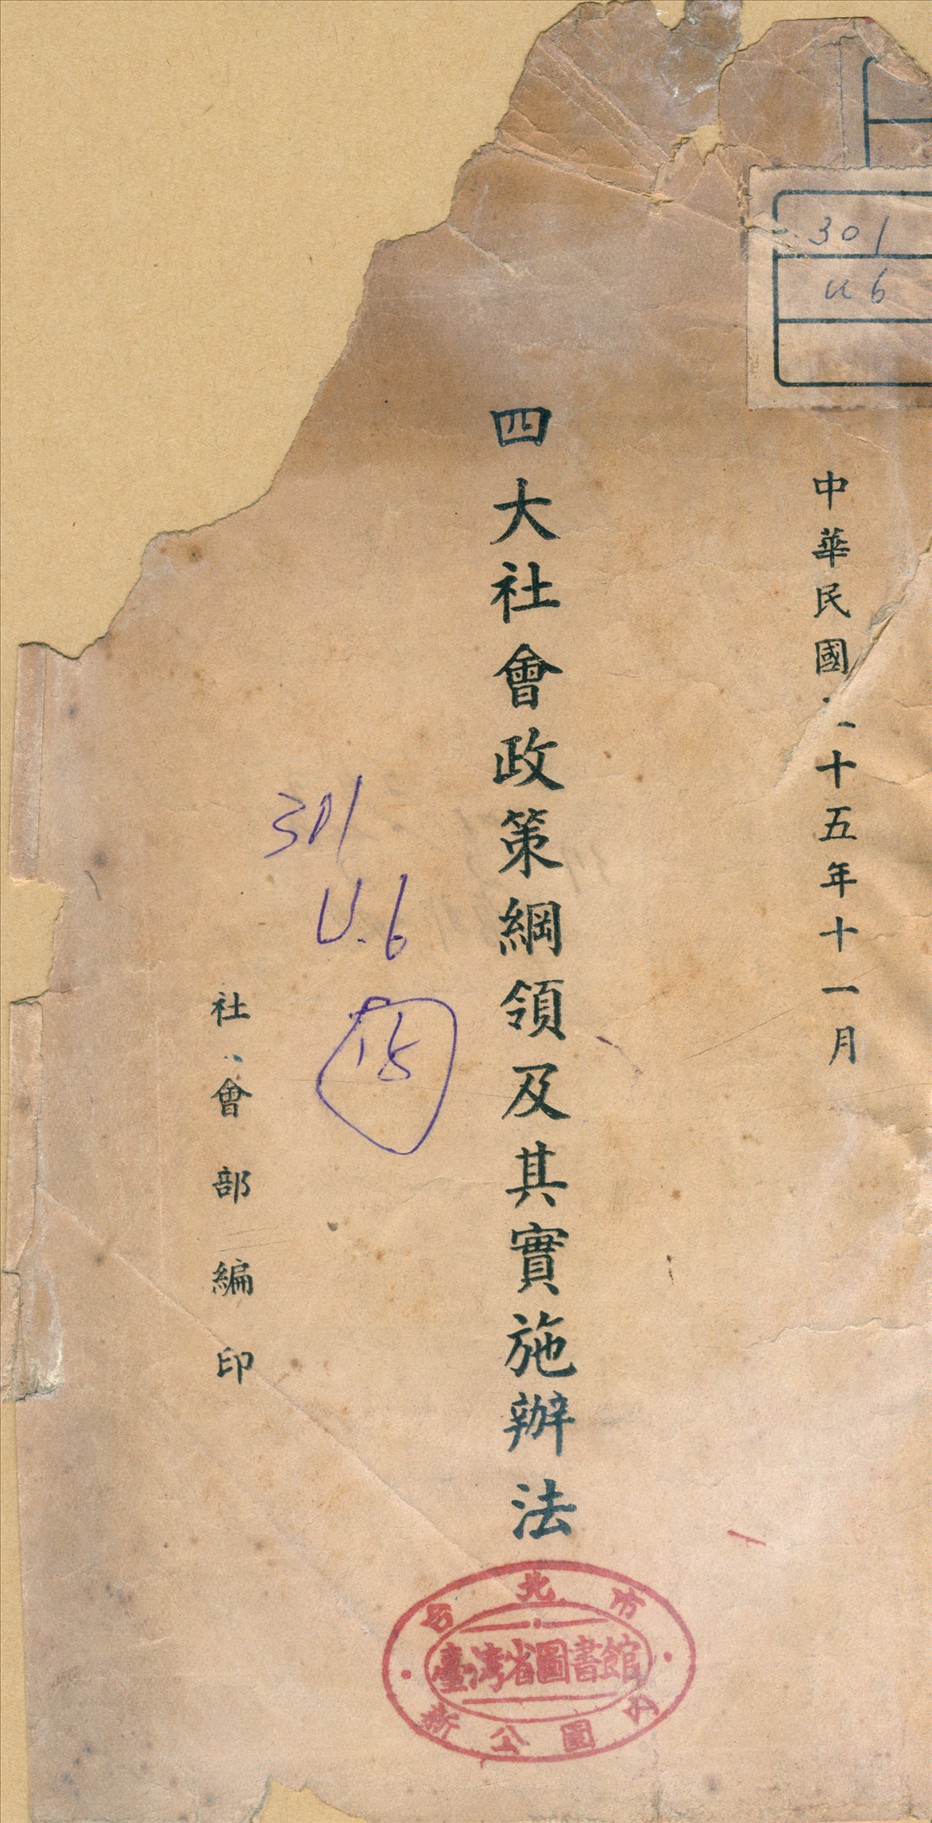 301
u6
中華民國 十五年十一月
四大社會政策綱領及其實施辦法
301
U.6
15
社會部編印
台北市
臺灣省圖書館
新公園內